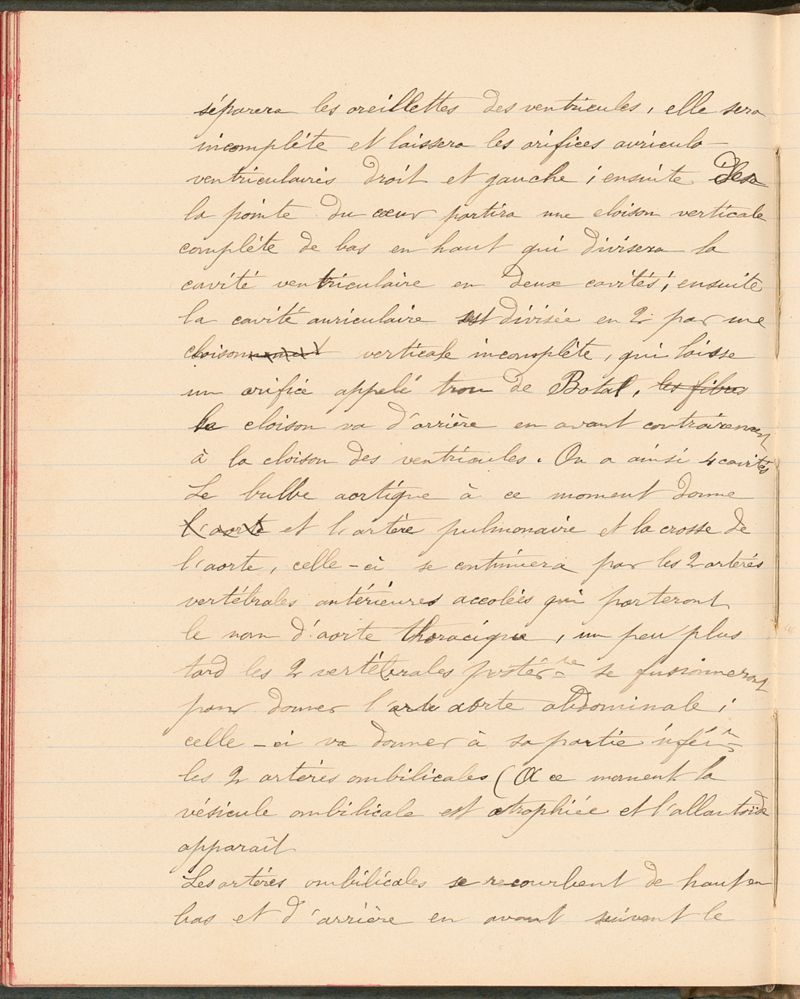 séparera les oreillettes des ventricules, elle sera
incomplète et laissera les orifices auriculo-
ventriculaires droit et gauche ; ensuite de
la pointe du cœur partira une cloison verticale
complète de bas en haut qui divisera la
cavité ventriculaire en deux cavités ; ensuite
la cavité auriculaire est divisée en 2 par une
cloison verticale incomplète, qui laisse
un orifice appelé trou de Botal, les fibres
la cloison va d'arrière en avant contrairement
à la cloison des ventricules. On a ainsi 4 cavités
Le bulbe aortique à ce moment donne
l'aorte et l'artère pulmonaire et la crosse de
l'aorte, celle-ci se continuera par les 2 artères
vertébrales antérieures accolées qui porteront
le nom d'aorte thoracique, un peu plus
tard les 2 vertébrales postér-re se fusionneront
pour donner l'arte aorte abdominale ;
celle-ci va donner à sa partie inféér
les 2 artères ombilicales (A ce moment la
vésicule ombilicale est atrophiée et l'allantoïde
apparaît
Les artères ombilicales se recourbent de haut en
bas et d'arrière en avant suivent le